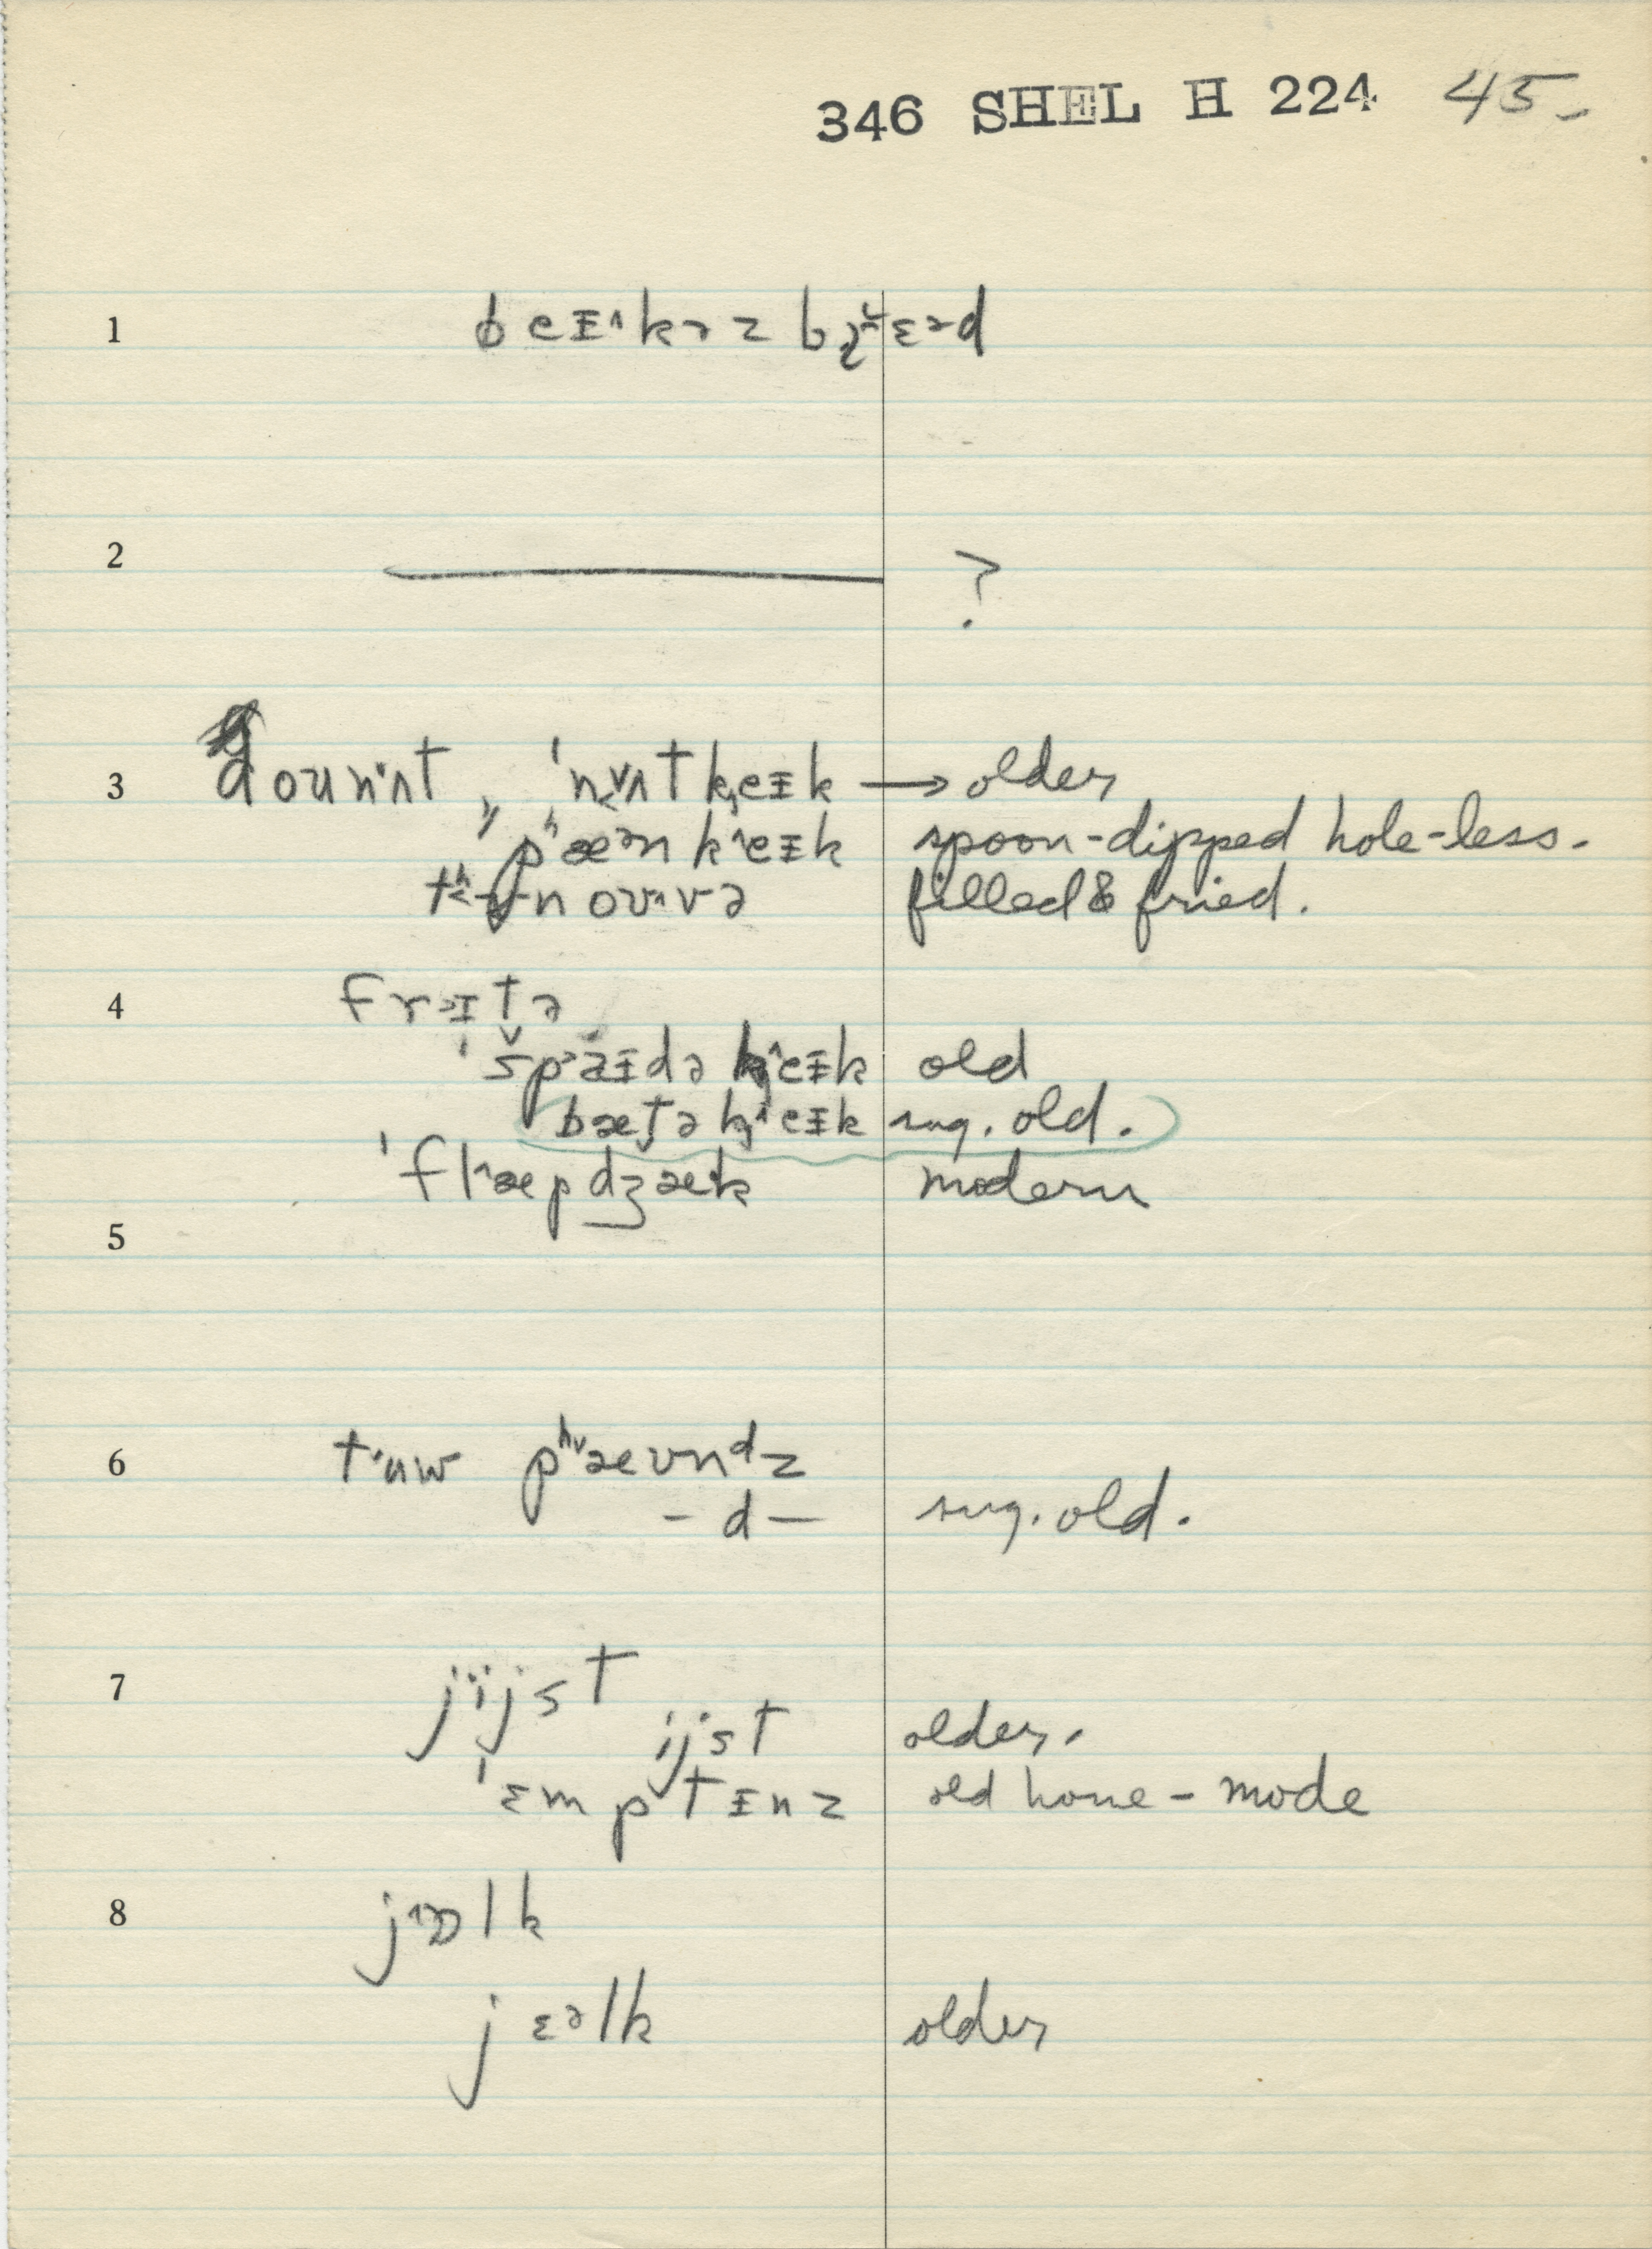 346 SHEL H 224 45-
1 beᵻ˄kəz br̥ɛəd
2 ?
3 doun˄ʌt, ˈnʌtkeᵻk → older
pʰæənk˄eᵻk spoon-dipped hole-less.
filled & fried.
4 frəɪtə
ˈspaᵻdə k˄eᵻk old
bætə k˄eᵻk sug. old.
ˈfl˄æpdʒæk modern
5
6 tʉw pʰ˅æʊndz
- d - sug. old.
7 jijst
ijst older.
ˈɛmptᵻnz old home-mode
8 j˄ɒlk
jɛəlk older